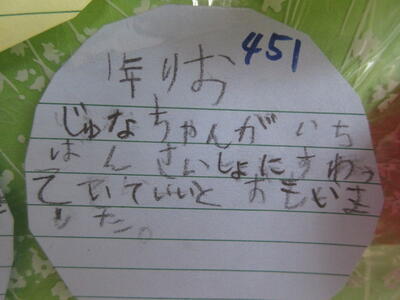 451
年りお
じゅなちゃんが いち
ばん さいしょにすわっ
ていていいと おもいま
した。